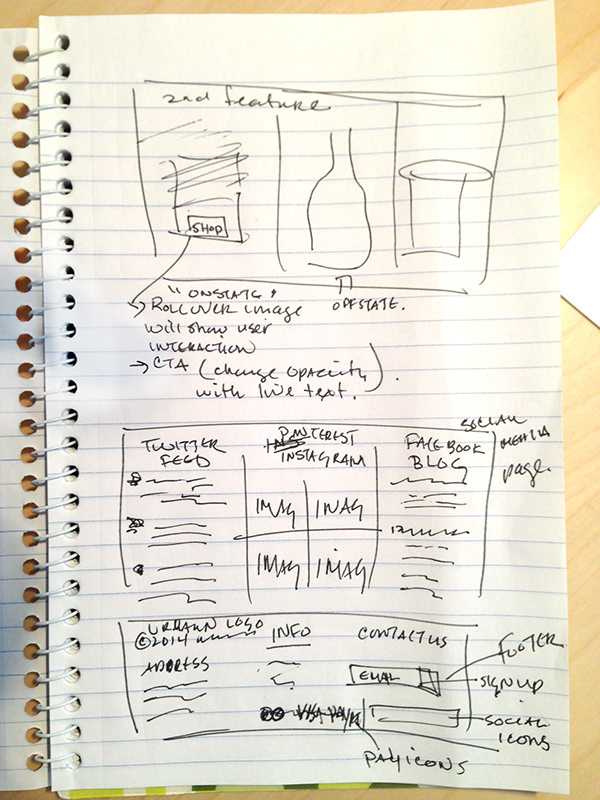 2nd feature
SHOP
"ONSTATE"
OFFSTATE.
→ ROLLOVER image
will show user
INTERACTION
→ CTA (change opacity
with live text.).
SOCIAL
MEDIA
page.
TWITTER
FEED
PINTEREST
INSTAGRAM
FACEBOOK
BLOG
IMAG
IMAG
IMAG
IMAG
LOGO
©2014
INFO
CONTACT US
FOOTER
ADDRESS
EMAIL
SIGN UP
SOCIAL
ICONS
PAY ICONS